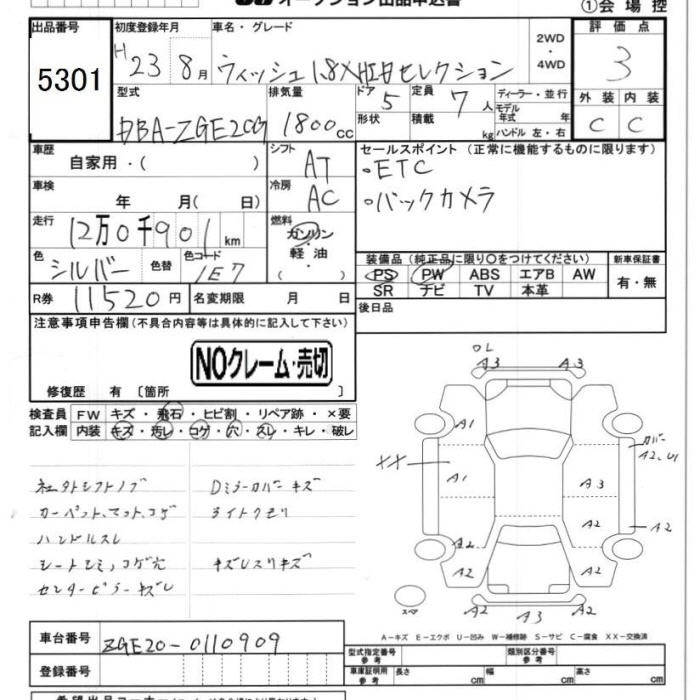 オークション出品申込書
①会場控
出品番号 5301
初度登録年月 H23 8月
車名・グレード ウィッシュ1.8X HIDセレクション
2WD・4WD
評価点 3
型式 DBA-ZGE20G
排気量 1800cc
ドア 5
形状
定員 7人
積載 kg
ディーラー・並行
モデル年式 年
ハンドル 左・右
外装 C
内装 C
車歴 自家用・( )
シフト AT
セールスポイント (正常に機能するものに限ります)
・ETC
・バックカメラ
車検 年 月( 日)
冷房 AC
走行 12万0千901km
燃料 ガソリン・軽油・( )
色 シルバー
色替
色コード 1E7
装備品 (純正品に限り○をつけてください)
PS PW ABS エアB AW
SR ナビ TV 本革
新車保証書 有・無
R券 11520円
名変期限 月 日
後日品
注意事項申告欄 (不具合内容等は具体的に記入して下さい)
NOクレーム・売切
修復歴 有 〔箇所 〕
検査員記入欄
FW キズ・飛石・ヒビ割・リペア跡・×要
内装 キズ・汚レ・コゲ・穴・スレ・キレ・破レ
社外シフトノブ
カーペット、マット、コゲ
ハンドルスレ
シートシミ、コゲ穴
センターピラーキズレ
Dミラーカバーキズ
ライトクモリ
キズレスリキズ
OL
A3 A3
A1
カバー
A2、U1
XX
A1
A3
A2 A2
A2 A2
A2 A2
A2 A3
スペア
A-キズ E-エクボ U-凹み W-補修跡 S-サビ C-腐食 XX-交換済
車台番号 ZGE20-0110909
登録番号
型式指定番号 参考
類別区分番号 参考
車庫証明用 参考
長さ cm 幅 cm 高さ cm
希望出品コーナー